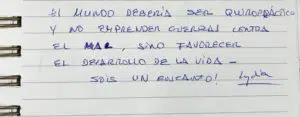 El MUNDO DEBERÍA SER QUIROPRÁCTICO
Y NO EMPRENDER GUERRAS CONTRA
EL MAL, SINO FAVORECER
EL DESARROLLO DE LA VIDA -
SOIS UN ENCANTO! Lydia